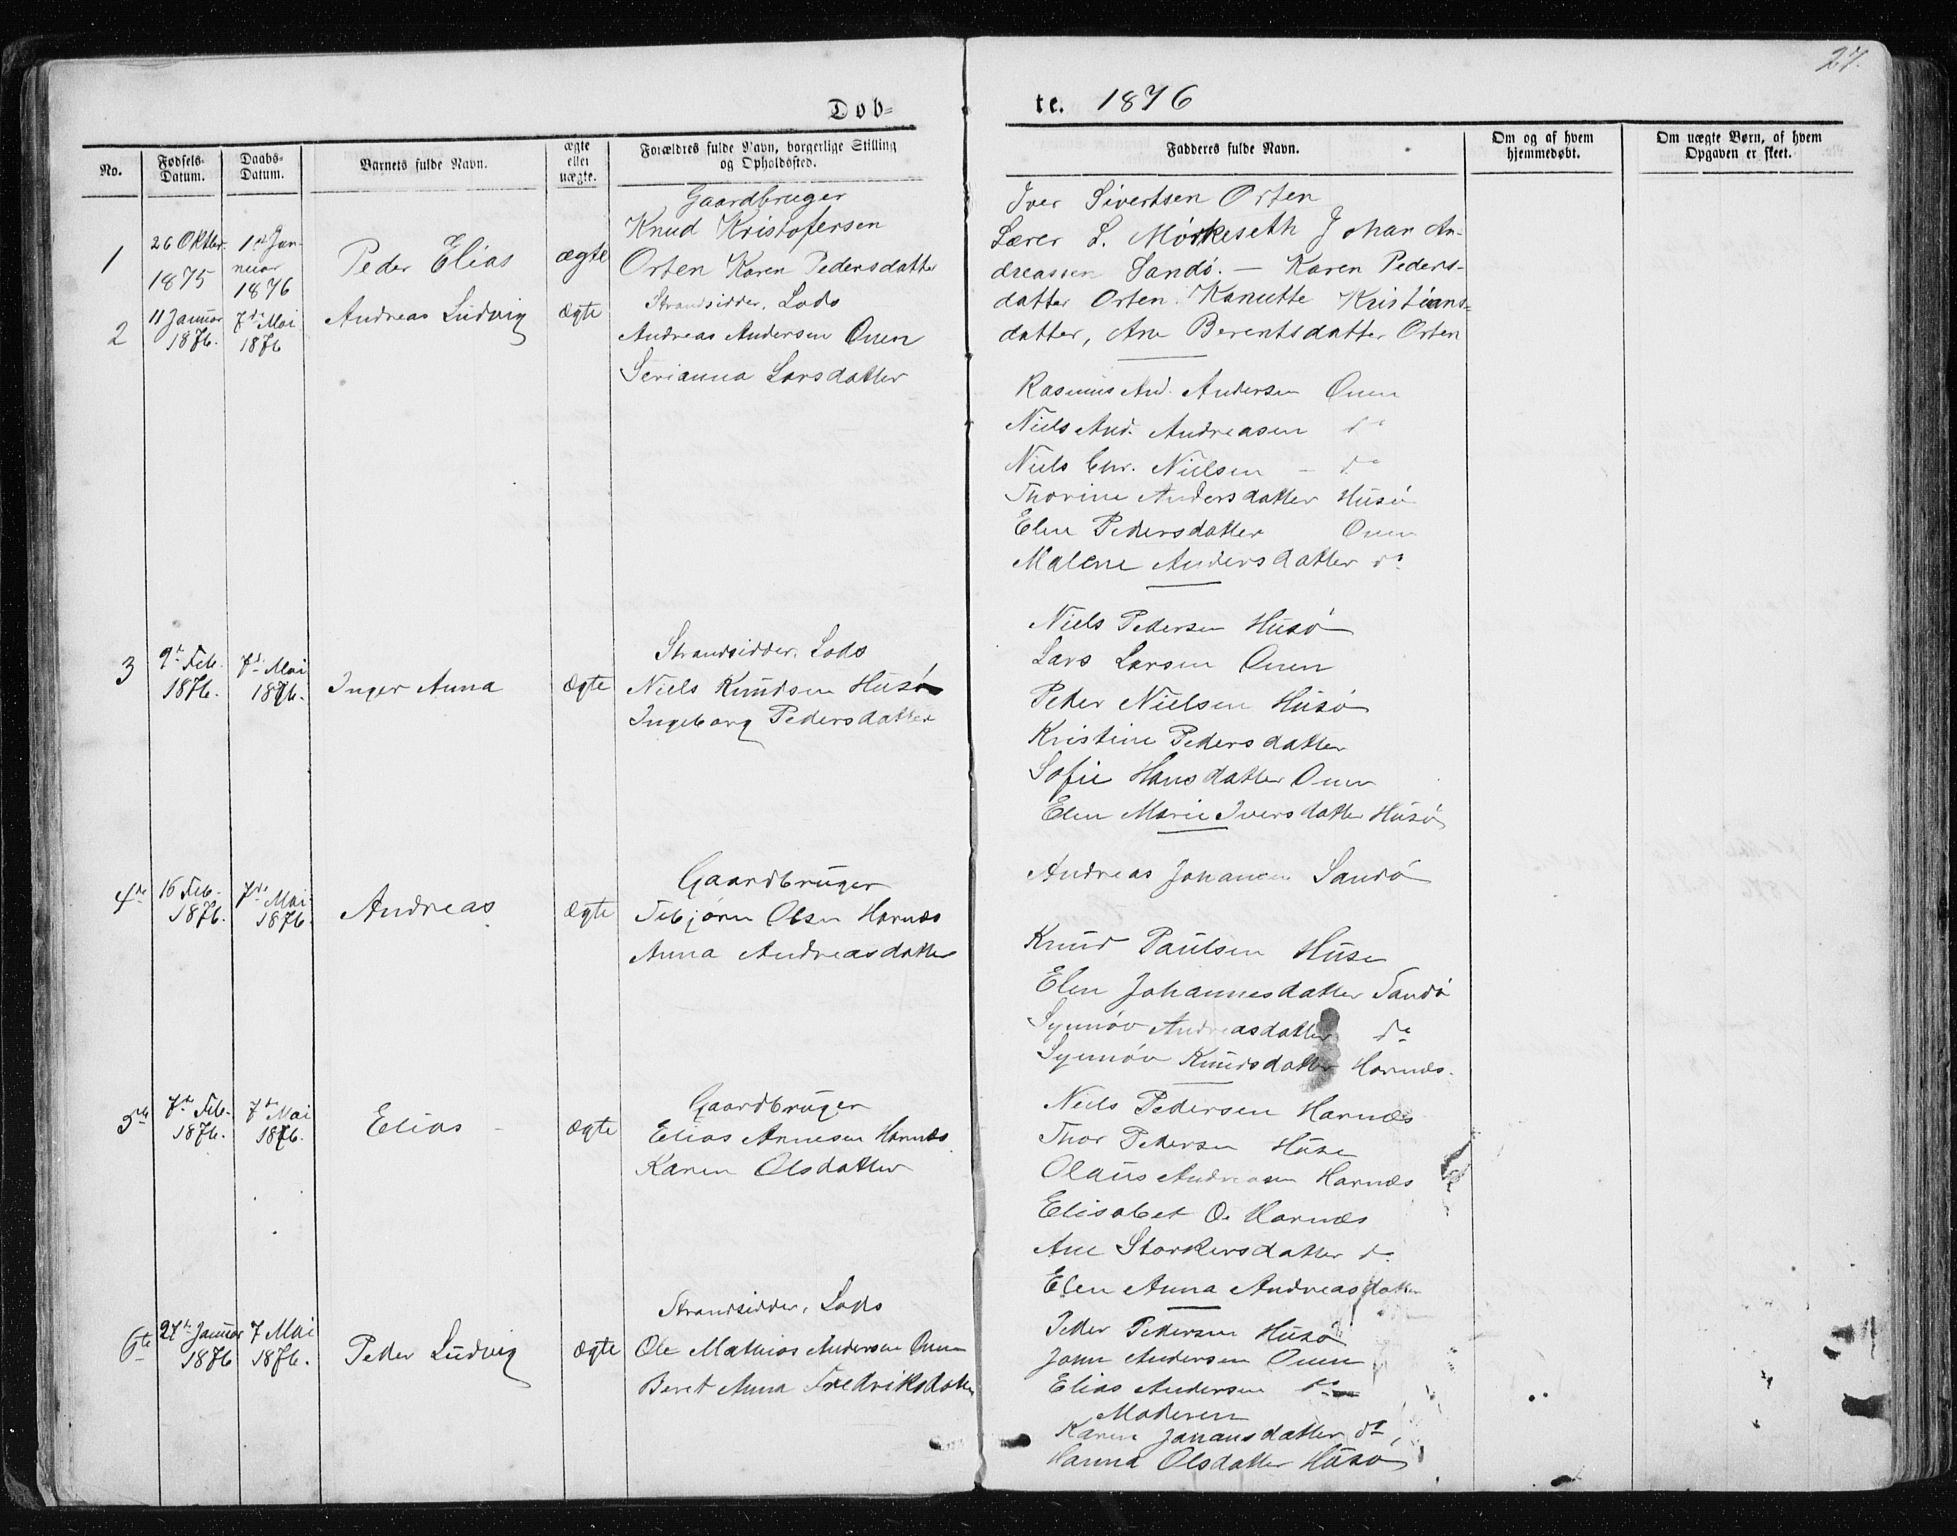 27.
Døb-
te. 1876
No.
Fødsels-
Datum.
Daabs-
Datum.
Barnets fulde Navn.
ægte
eller
uægte.
Forældres fulde Navn, borgerlige Stilling
og Opholdssted.
Faddernes fulde Navn.
Om og af hvem
hjemmedøbt.
Om uægte Børn, af hvem
Opgaven er skeet.
1
26 Oktbr.
1875
1ste Jan-
nuar
1876
Peder Elias
ægte
Gaardbruger
Knud Kristofersen
Orten Karen Pedersdatter
Iver Sivertsen Orten
Lærer L. Mørkeseth Johan An-
dreassen Sandø. — Karen Peders-
datter Orten. Kanutte Kristians-
datter, Ane Berentsdatter Orten
2
11 Januar
1876.
7de Mai
1876
Andreas Ludvig
ægte
Strandsidder, Lods
Andreas Andersen Onen
Serianna Larsdatter
Rasmus And. Andersen Onen
Niels And. Andreasen do
Niels Chr. Nielsen – do
Thorine Andersdatter Husø
Elen Pedersdatter Onen
Malene Andersdatter do
3
9de Feb.
1876.
7de Mai
1876.
Inger Anna
ægte
Strandsidder, Lods
Niels Knudsen Husø
Ingeborg Pedersdatter
Niels Pedersen Husø
Lars Larsen Onen
Peder Nielsen Husø
Kristine Pedersdatter
Sofie Hansdatter Onen
Elen Marie Iversdatter Husø
4de
16 Feb.
1876.
7de Mai
1876.
Andreas
ægte
Gaardbruger
Tebjørn Olsen Harnæs
Anna Andreasdatter
Andreas Johansen Sandø
Knud Paulsen Huse
Elen Johannesdatter Sandø
Synnøv Andreasdatter do
Synnøv Knudsdatter Harnæs.
5te
7de Feb.
1876.
7de Mai
1876.
Elias
ægte
Gaardbruger
Elias Arnesen Harnæs
Karen Olsdatter
Niels Pedersen Harnæs
Thor Pedersen Huse
Olaus Andreasen Harnæs
Elisabet O. Harnæs
Ane Storkersdatter do
Elen Anna Andreasdatter
6te
27de Januar
1876
7 Mai
1876.
Peder Ludvig
ægte
Strandsidder, Lods
Ole Mathias Andersen Onen
Beret Anna Fredriksdatter
Peder Pedersen Husø
John Andersen Onen
Elias Andersen do
Moderen
Karen Johansdatter do,
Hanna Olsdatter Husø